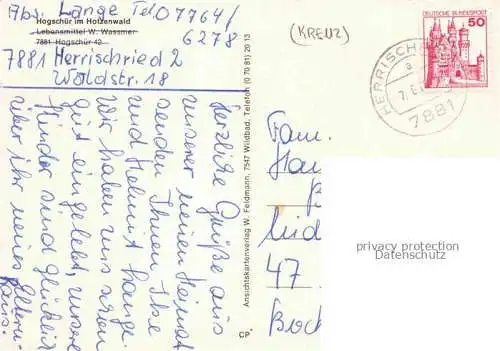 Abs. Lange Tel. 07764/
6278
Hogschür im Hotzenwald
Lebensmittel W. Wassmer
7881 Hogschür 42
7881 Herrischried 2
Waldstr. 18
Herzliche Grüße aus
unserer neuen Heimat
senden Ihnen Ilse
und Helmut Lange.
Wir haben uns schon
gut eingelebt, unsere
Kinder sind glücklich
über ihr neues Eltern-
haus.
Ansichtskartenverlag W. Feldmann, 7547 Wildbad, Telefon (0 70 81) 20 13
CP
(KREUZ)
DEUTSCHE BUNDESPOST
50
HERRISCH
a
7881
Fam.
47
Boch
privacy protection
Watermark DM